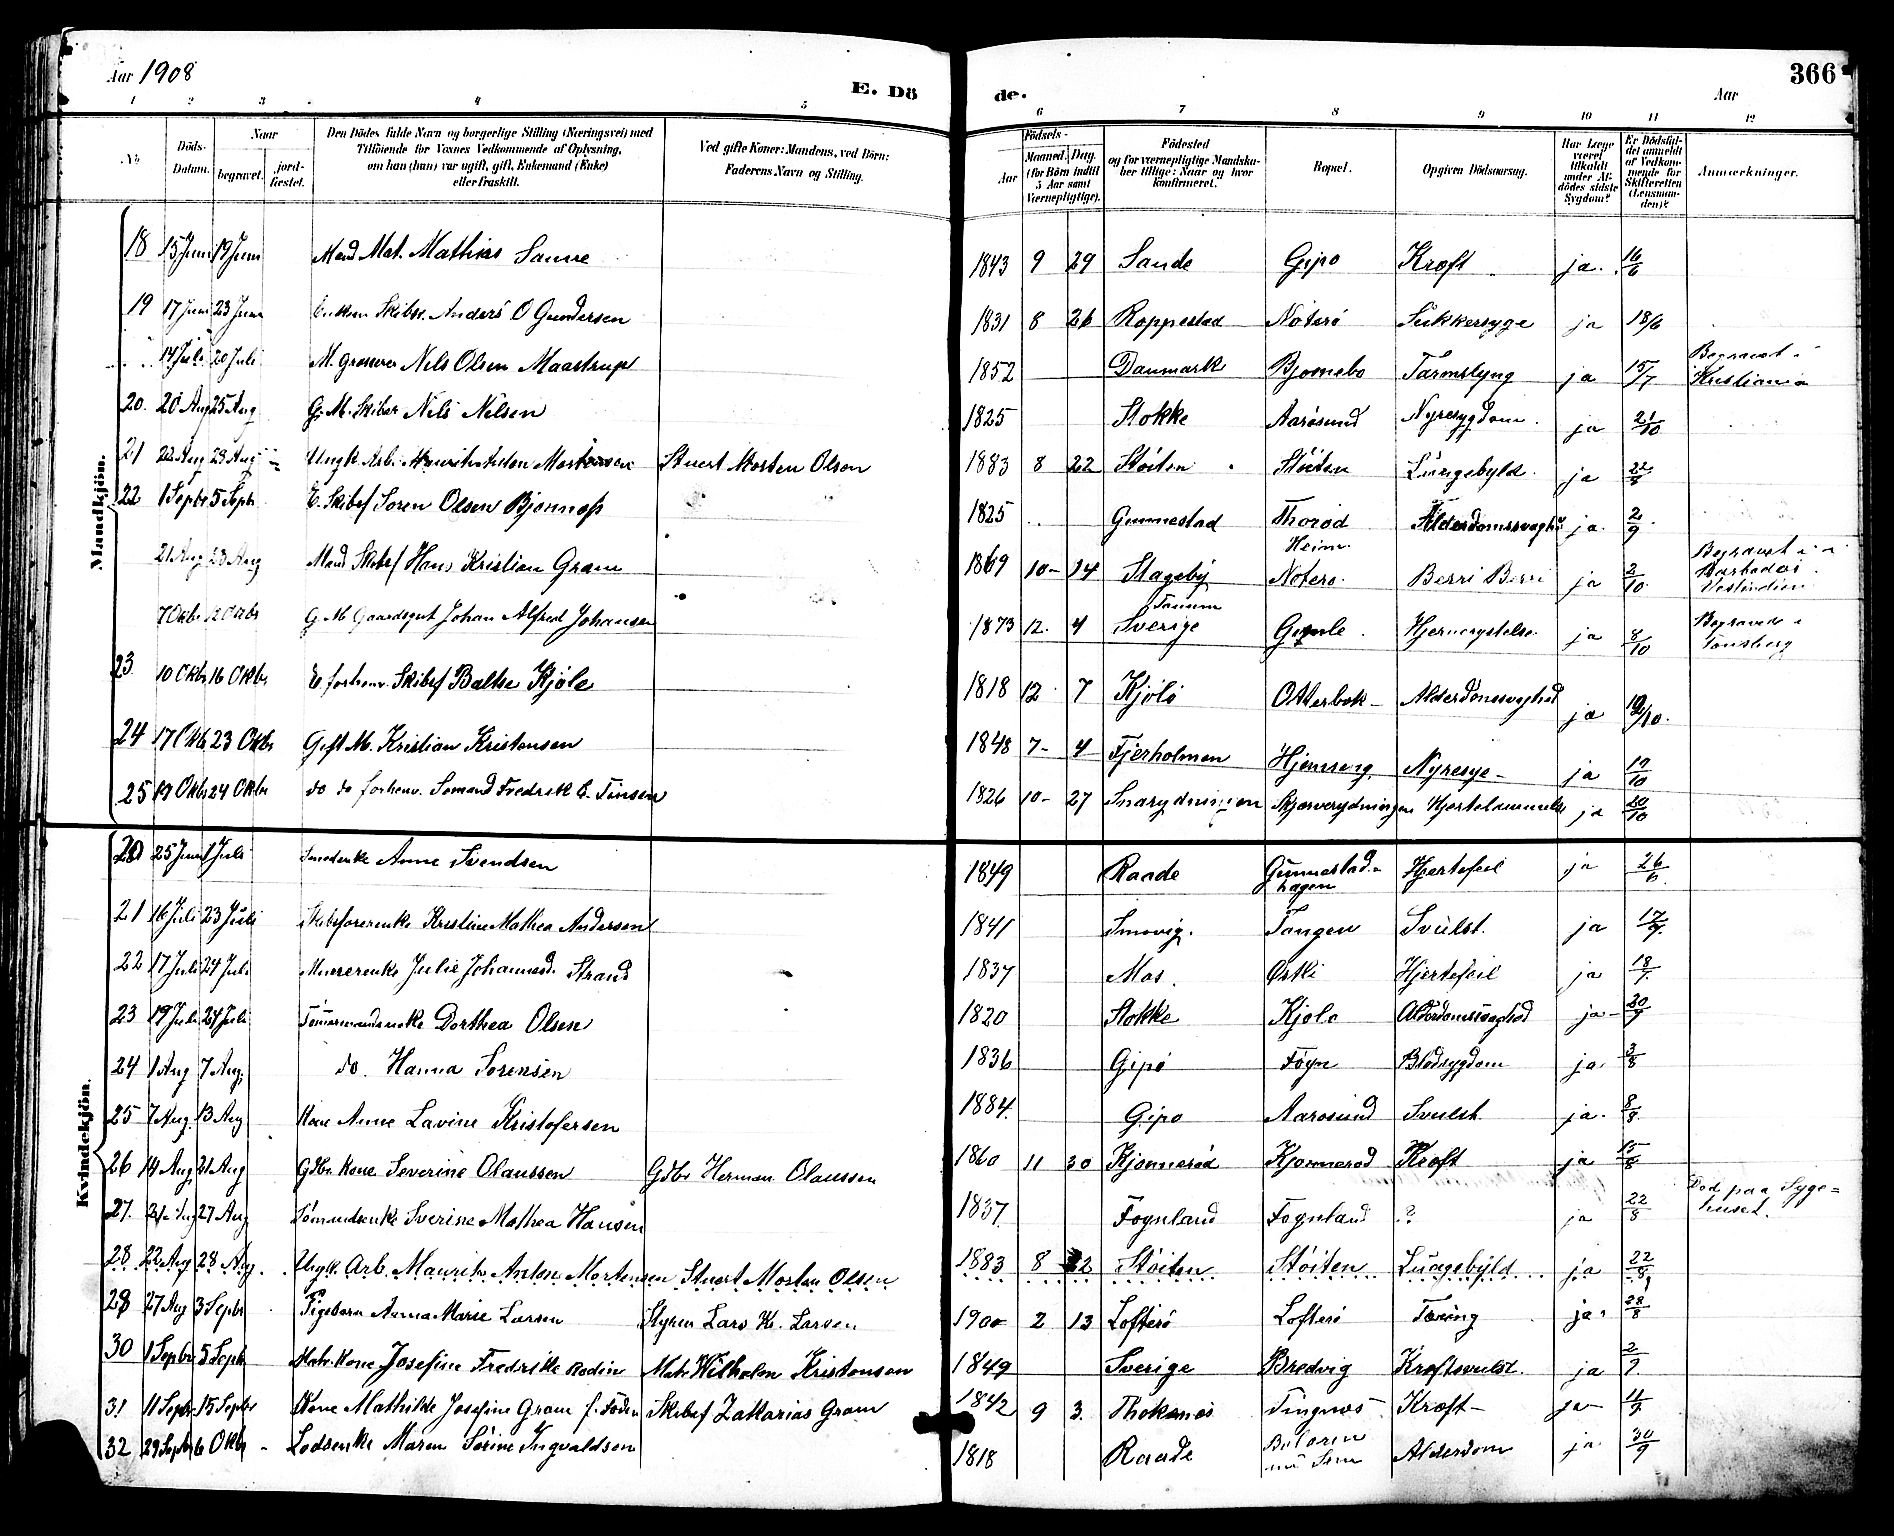 Aar 1908
E. Dö
de.
Aar
366
1 2 3 4 5 6 7 8 9 10 11 12
No
Döds-
Datum.
Naar
begravet.
jord-
fæstet.
Den Dödes fulde Navn og borgerlige Stilling (Næringsvei) med
Tilföiende for Voxnes Vedkommende af Oplysning,
om han (hun) var ugift, gift, Enkemand (Enke)
eller fraskilt.
Ved gifte Koner: Mandens, ved Börn:
Faderens Navn og Stilling.
Födsels-
Aar
Maaned. Dag.
(for Börn indtil
5 Aar samt
Værnepligtige).
Födested
og for værnepligtige Mandska-
ber tillige: Naar og hvor
konfirmeret.
Bopæl.
Opgiven Dödsaarsag.
Har Læge
været
tilkaldt
under Af-
dödes sidste
Sygdom?
Er Dödsfal-
det anmeldt
af Vedkom-
mende for
Skifteretten
(Lensman-
den)?
Anmærkninger.
Mandkjön.
18 15 Juni 19 Juni Mand Mat. Mathias Sanne 1843 9 29 Sande Gipø Kræft ja. 16/6
19 17 Juni 23 Juni Enkem Skibsr. Anders O Gundersen 1831 8 26 Roppestad Nøterø Sukkersyge ja 18/6
14 Juli 20 Juli M. Grosserer Nils Olsen Maastrup 1852 Danmark Bjørnebo Tarmslyng ja 15/7 Begravet i
Kristiania
20. 20 Aug 25 Aug G. M. Skibsr Nils Nilsen 1825 Stokke Aarøsund Nyresygdom. ja 21/10
21 22 Aug 28 Aug Ungk. Arb. Mauritz Anton Mortensen Stuert Morten Olsen 1883 8 22 Støiten Støiten Lungebyld. ja 22/8
22 1 Septbr 5 Septbr E. Skibsf Søren Olsen Bjønnes 1825 Gunnestad Thorød Alderdomssvaghed ja. 2/9
21 Aug 23 Aug Mand Skibsf Hans Kristian Gram 1869 10 14 Stagebÿ Heim.
Nøterø. Berri Berri ja 2/10 Begravet i
Barbados
Vestindien
7 Oktbr 12 Oktbr G. M Gaardsgut Johan Alfred Johansen 1873 12. 4 Tanum
Sverige Gipøle. Hjernerystelse. ja 8/10 Begraved i
Tønsberg
23 10 Oktbr 16 Oktbr E. forhenv. Skibsf Baltse Kjøle 1818 12 7 Kjølø Otterbæk Alderdomssvaghed ja 12/10.
24 17 Oktbr 23 Oktbr Gift M. Kristian Kristensen 1848 7 4 Fjerholmen Hjemseng Nyresyge ja 19/10
25 19 Oktbr 24 Oktbr do do forhenv. Sømand Fredrik C. Jinsen 1826 10 27 Snarydningen Skjærverydningen Hjertelammelse ja 20/10
Kvindekjön.
20 25 Juni 1 Juli Smedenke Anne Svendsen 1849 Raade Gunnestad-
hagen Hjertefeil ja 26/6
21 16 Juli 23 Juli Skibsførerenke Kristine Mathea Andersen 1841 Smovig. Tangen Svulst. ja 17/7.
22 17 Juli 24 Juli Murerenke Julie Johannesd. Strand 1837 Mos. Østbi Hjertefeil ja 18/7.
23 19 Juli 24 Juli Tømermandsenke Dorthea Olsen 1820 Stokke Kjølø Alderdomssvaghed ja 20/7
24 1 Aug 7 Aug. do. Hanna Sørensen 1836 Gipø Føyn Blodsygdom ja. 3/8
25 7 Aug. 13 Aug Kone Anne Lavine Kristofersen 1884. Gipø Aarøsund Svulst ja. 8/8.
26 14 Aug 21 Aug Gdbr. Kone Severine Olaussen Gdbr Herman Olaussen 1860 11 30 Kjønnerød Kjønnerød Kræft ja 15/8
27. 21 Aug 27 Aug Sømandsenke Sverine Mathea Hansen 1837 Føynland Føynland ? ja 22/8 Død paa Syge=
huset.
28 22 Aug 28 Aug. Ungk. Arb. Mauritz Anton Mortensen Stuert Morten Olsen 1883 8 22 Støiten Støiten Lungebyld ja 22/8
28 27 Aug 3 Septbr Pigebarn Anna Marie Larsen Styrm Lars K. Larsen 1900 2 13 Lofterø Lofterø Tæring ja. 28/8
30 1 Septbr 5 Septb Matr. Kone Josefine Fredrikke Rodin Matr Wilhelm Kristensen 1849 Sverige Bredvig Kræftsvulst. ja 2/9.
31 11 Septbr 15 Septbr Kone Mathilde Josefine Gram f. Foden Skibsf Zakarias Gram 1842 9 3. Thokenes Tingnes Kræft ja 11/9
32 29 Septbr 6 Oktbr Lodsenke Maren Sørine Ingvaldsen 1818 Raade Bolæren
Sem Alderdom ja. 30/9